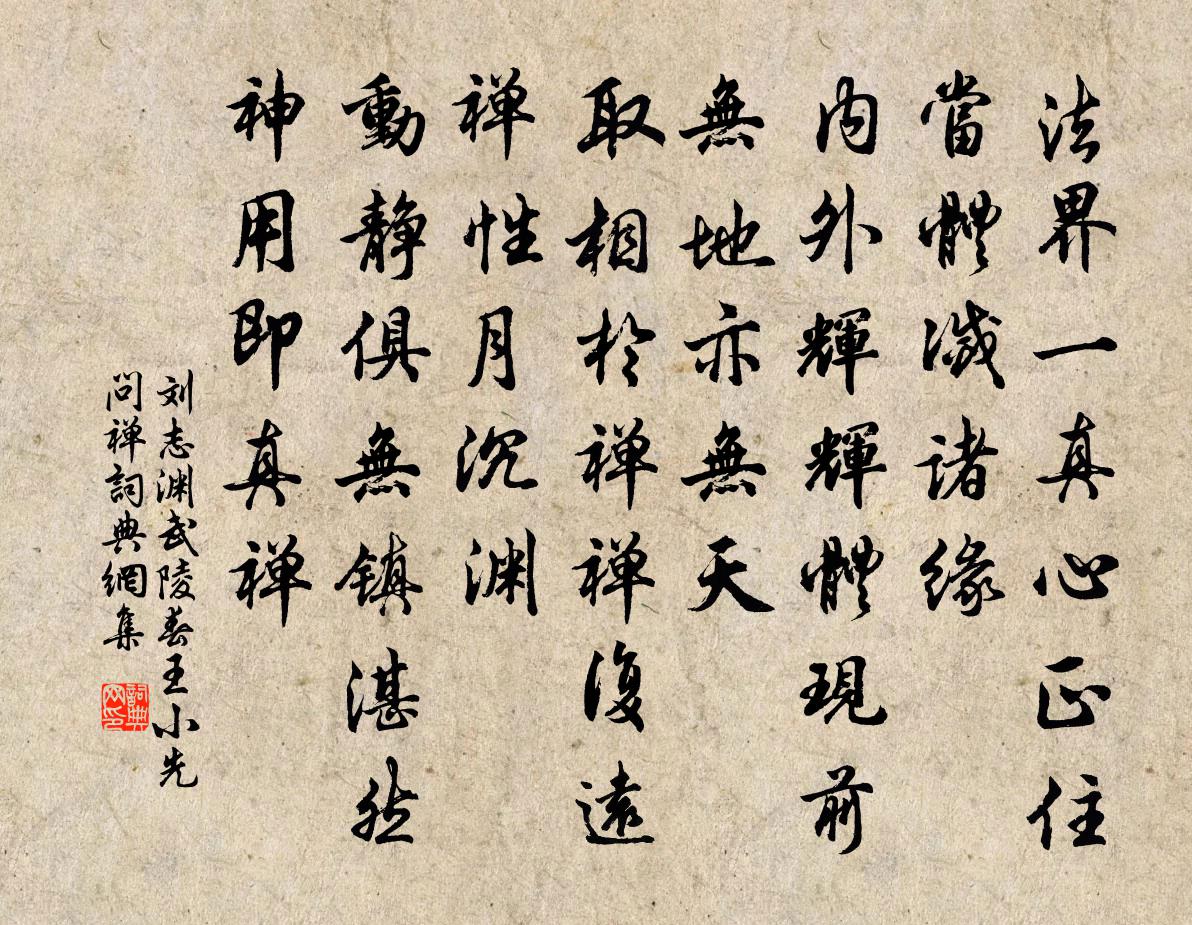 法界一真心正住
當體滅諸緣
内外輝輝體現前
無地亦無天
取相於禅禅復遠
禅性月沉渊
動靜俱無镇湛然
神用即真禅
刘志渊武陵春王小先
问禅詞典網集
詞典网印